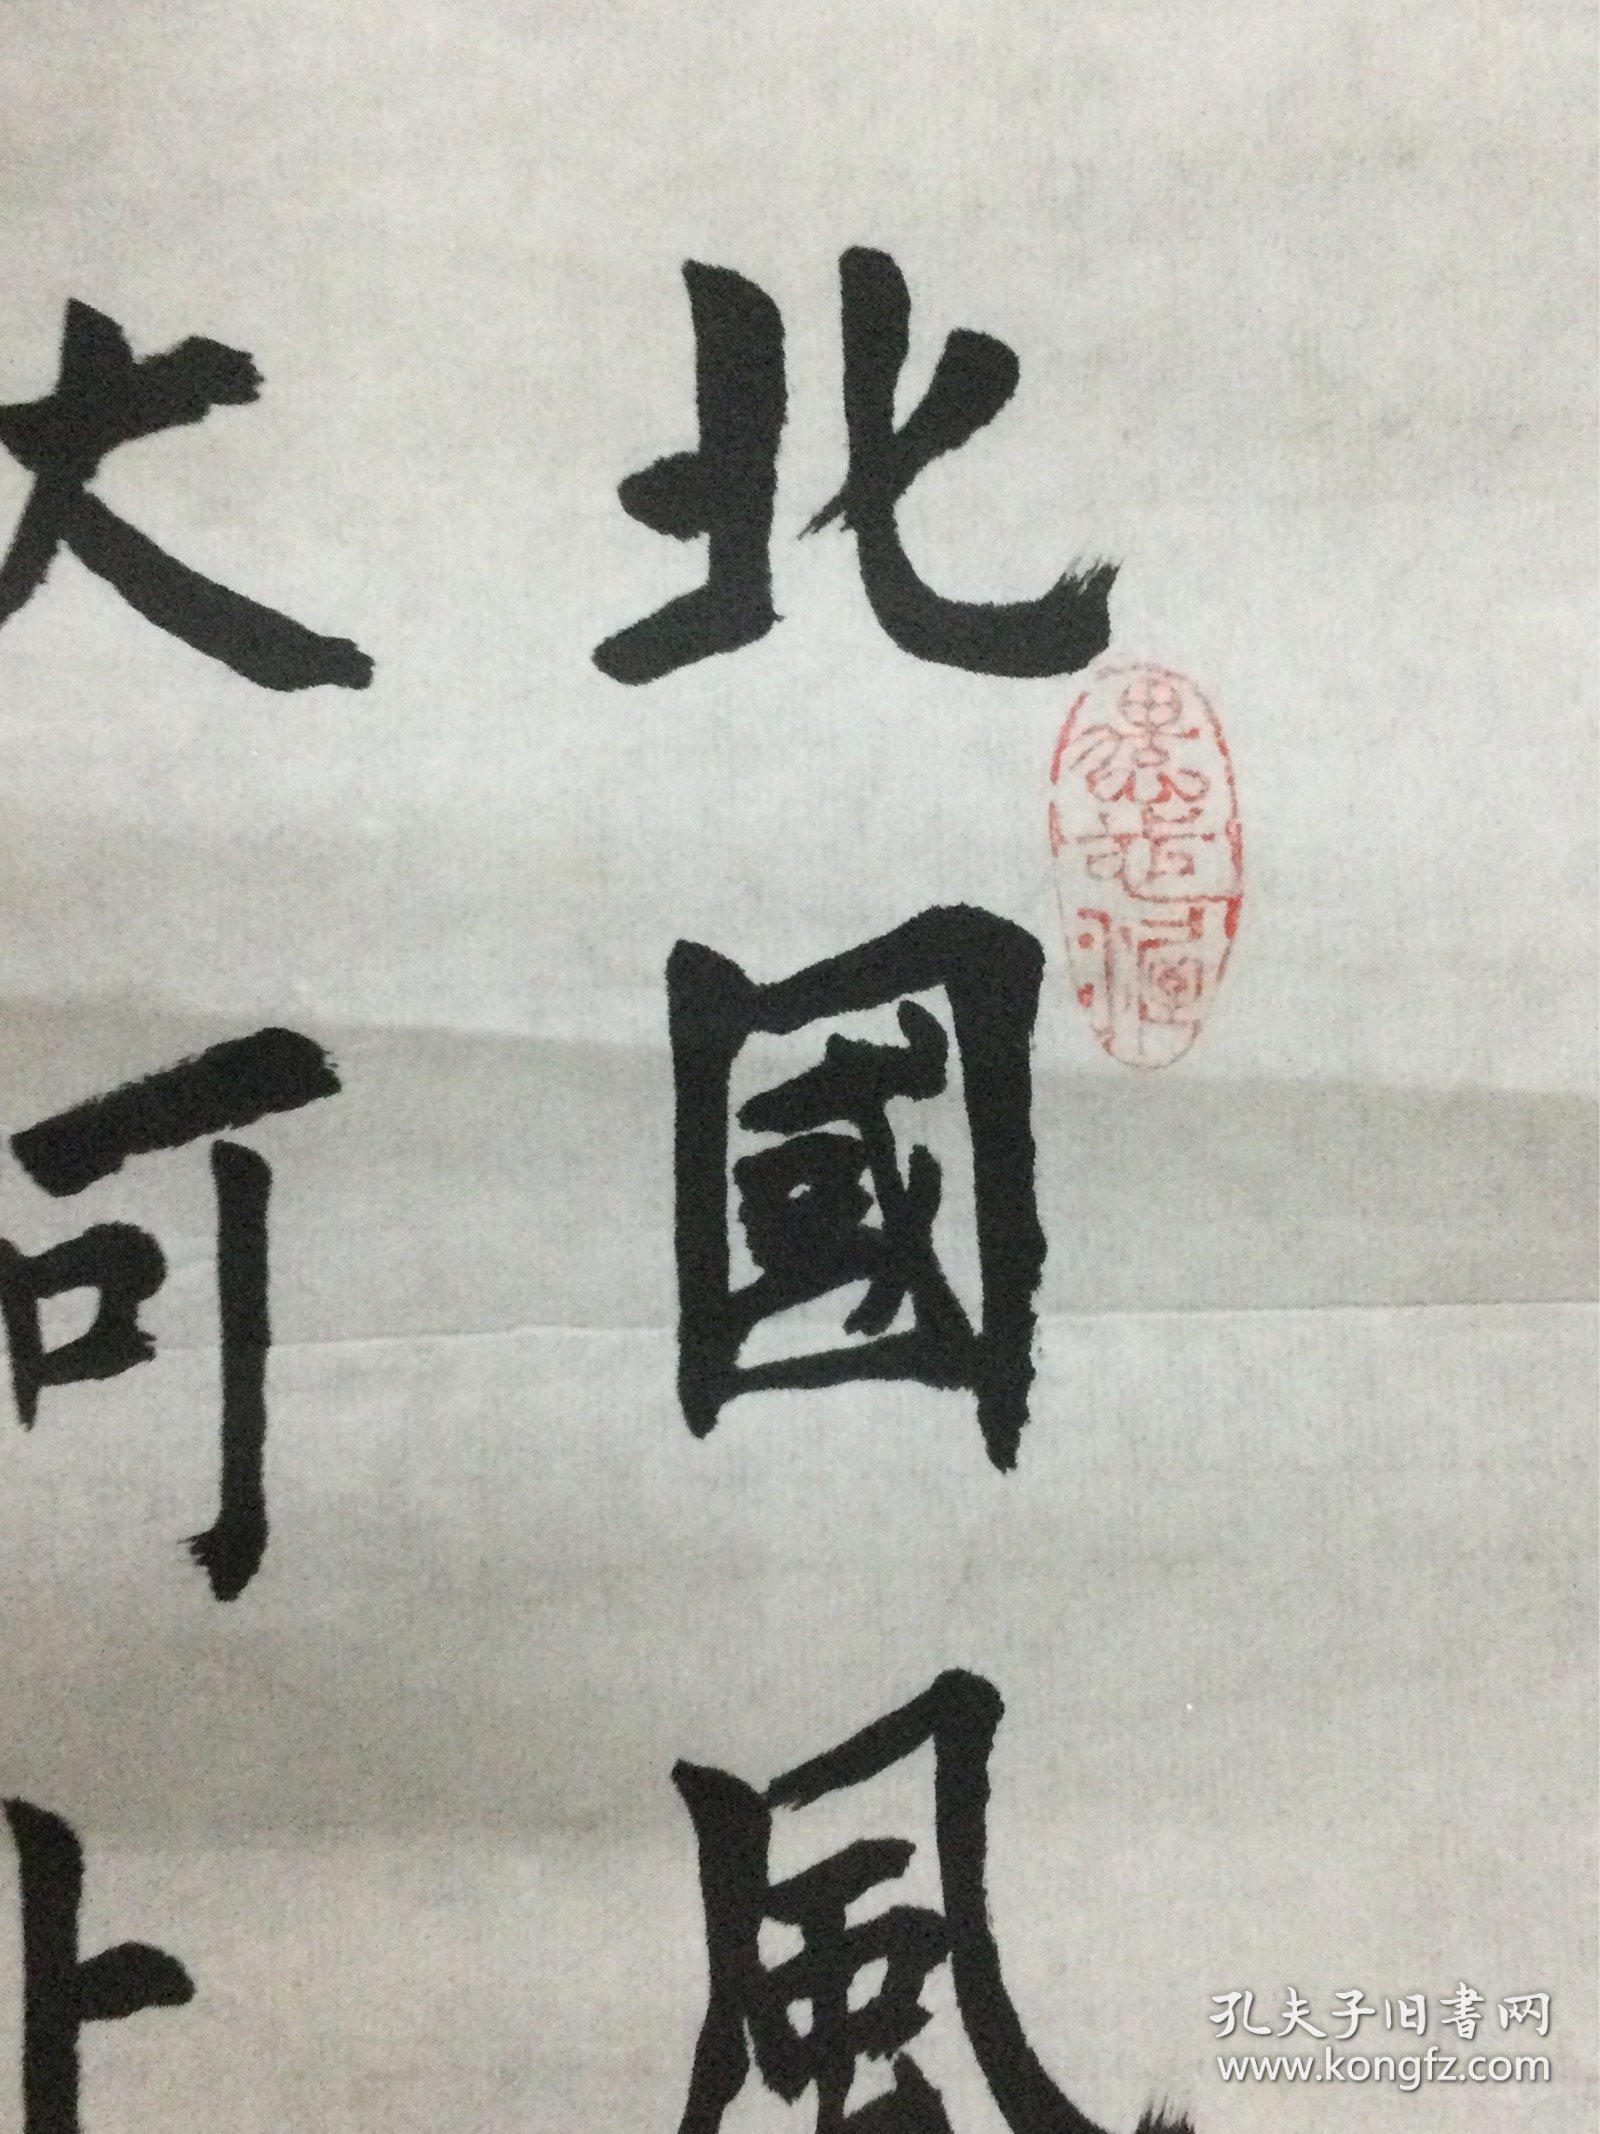 北國風
大河上
孔夫子旧書网
www.kongfz.com